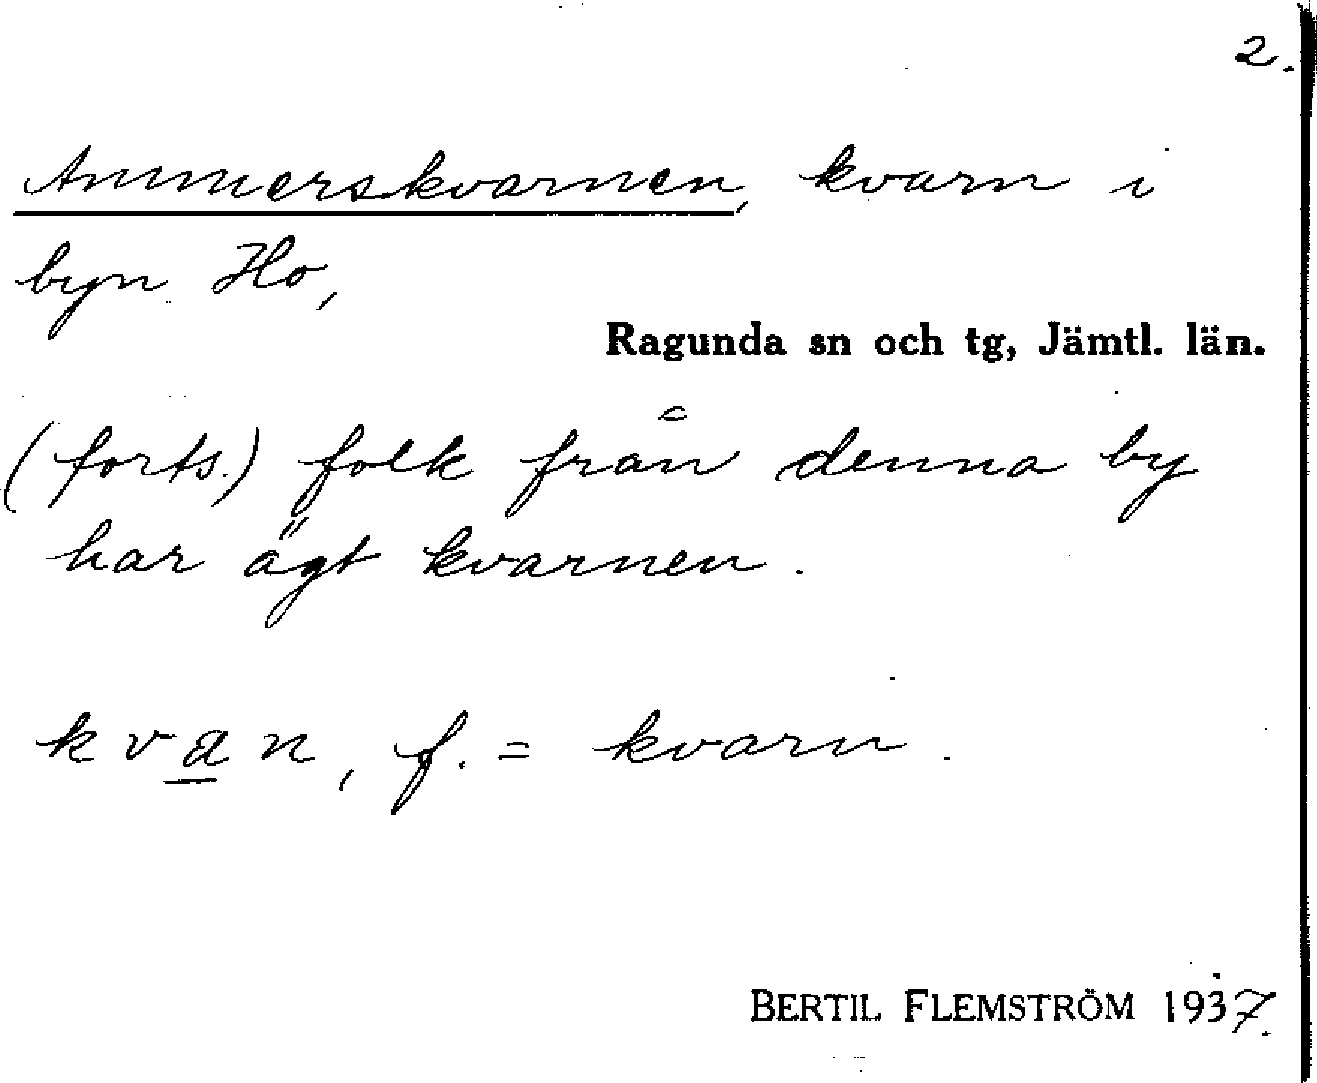 2.
Ammerskvarnen, kvarn i
byn Ho,
Ragunda sn och tg, Jämtl. län.
(forts.) folk från denna by
har ägt kvarnen.
kvan, f. = kvarn.
BERTIL FLEMSTRÖM 1937.